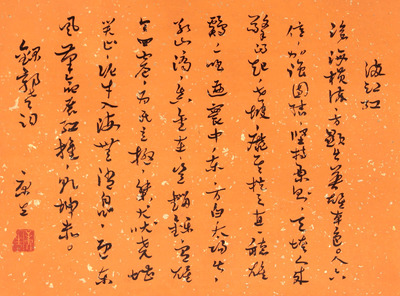 满江红
沧海横流，方显出英雄本色。人六
亿，加强团结，坚持原则。天垮下来
擎得起，世披靡矣扶之直。听雄
鸡一唱遍寰中，东方白。太阳出，
冰山滴，真金在，岂销铄。有雄
文四卷，为民立极。桀犬吠尧堪
笑止，泥牛入海无消息。迎东
风革命展红旗，乾坤赤。
録郭老词
康生